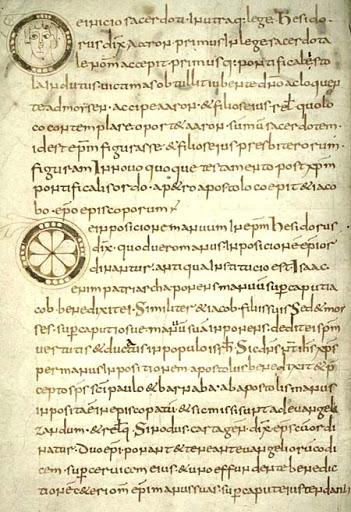 De initio sacerdotii in utraq; lege. hesido
rus dix̄ aaron primus in lege sacerdota
le nom̄ accepit primusq; pontificale sto
la indutus victimas obtulit iubente dn̄o ac loquen
te ad moysen. accipe aaron & filios eius & rel̄ quo lo
co contemplare oport& aaron summū sacerdotem.
id est ep̄m figurasse & filios eius presbiterorum
figuram in novo quoque testamento post xp̄m
pontificalis ordo a p&ro apostolo coepit & iaco
bo ep̄o episcoporum
De inposicione manuum in ep̄m hesidorus
dix̄. quod vero manus inposicione ep̄i or
dinantur antiqua institucio est. isaac
enim patriarcha ponens manus sup̄ caput ia
cob benedixit ei. Similiter & iacob filiis suis. Sed & moy
ses sup̄ caput iosue manū suā inponens dedit ei sp̄m
vertutis & ducatus in populo isrl̄. Sic dn̄s n̄r ih̄s xp̄s
per manus inpositionem apostolus benedixit & p̄
cepto sp̄s sc̄i paulo & barnaba ab apostolis manus
inposita ē in episcopatū & sic missi sunt ad evangeli
zandum & rel̄. Sinodus cartagen̄ dix̄ ep̄s cū ordi
natur. Duo ep̄i ponant & teneant evangeliorū codi
cem. sup̄ cervicem eius & uno effundente benedic
tione & om̄ ep̄i manus suas sup̄ caput eius